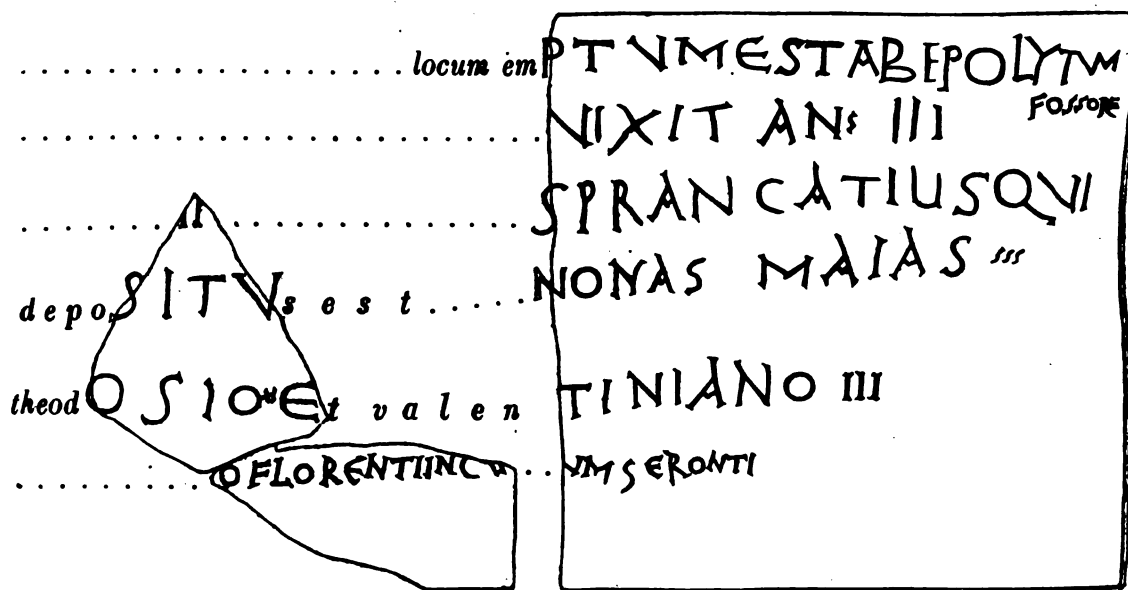 .................... locum emPTVMESTABEPOLYTVM
FOSSORE
.................... VIXIT ANs III
II .................... SPRANCATIUSQVI
depoSITVs est ...... NONAS MAIAS sss
theodOSIO Et valenTINIANO III
.......... O FLORENTIINC V ... VMSERONTI